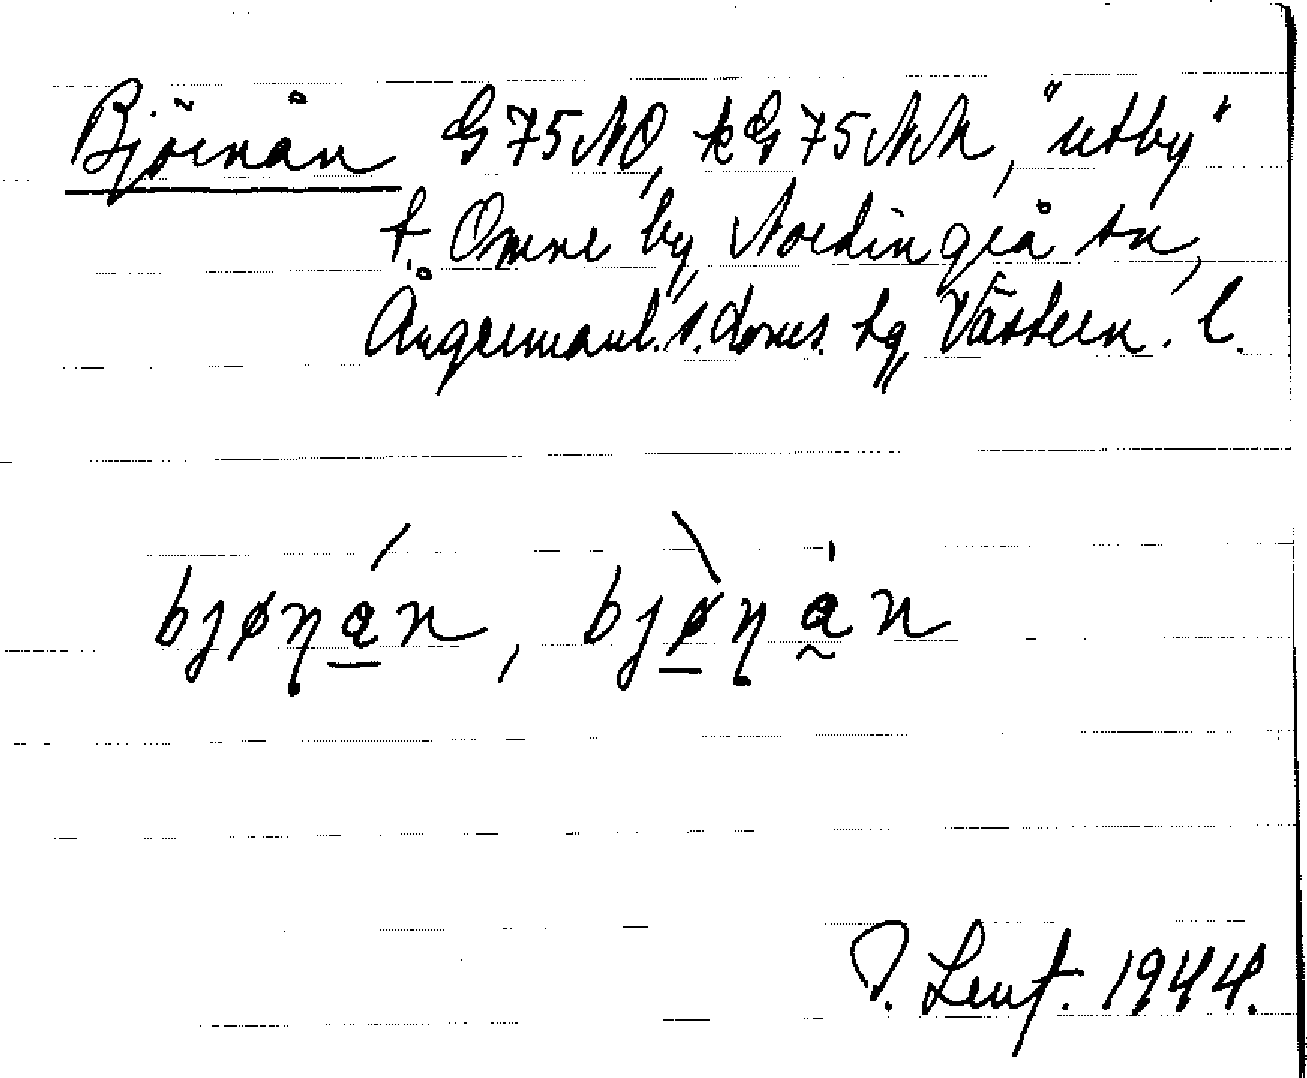 Björnån G75NO, kG75NN, "utby"
t. Omne by, Nordingrå sn,
Ångermanl. s. doms. tg, Västern. l.
bjøṇa̱n, bjø̱ṇa̰n
P. Lenf. 1944.